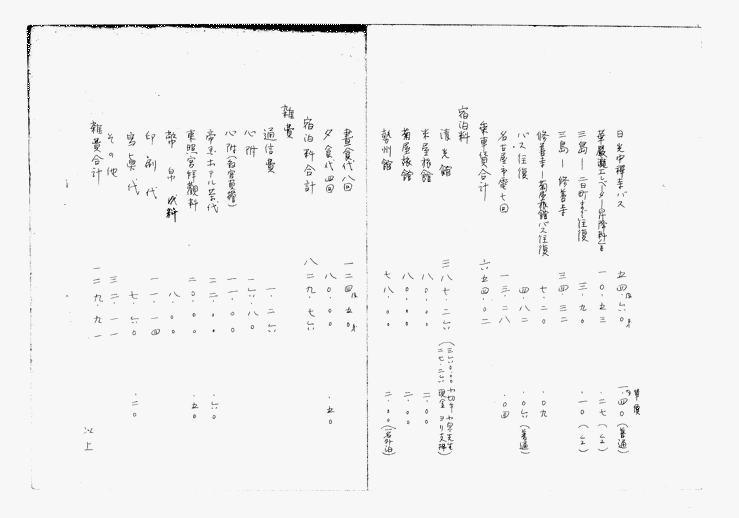 単價
日光中禅寺バス 五四・六〇 一・四〇(普通)
華嚴瀧エレベーター昇降料 一〇・五三 ・二七(〃)
三島―二日町 往復 三・九〇 ・一〇(〃)
三島―修善寺 三四・三二
修善寺―菊屋旅館バス往復 七・二〇 ・〇九
バス往復 四・八二 ・〇六(普通)
名古屋市電七回 一三・二八 ・〇四
乗車賃合計 六五四・〇二
宿泊料
清光館 三八七・二六
米屋旅館 八〇・〇〇 二・〇〇
菊屋旅館 八〇・〇〇 二・〇〇
勢州館 七八・〇〇 二・〇〇(一名外泊)
晝食代八回 一二四・五〇
夕食代四回 八〇・〇〇 ・五〇
宿泊料合計 八二九・七六
雜費
通信費 一・二六
心附 二六・八〇
心附 一一・〇〇
帝国ホテル茶代 二二・〇〇 ・六〇
東照宮拝觀料 二〇・〇〇 ・五〇
八・〇〇
印刷代 一一・一四
寫真代 七・六〇 ・二〇
その他 三二・一一
雜費合計 一二九・九一
以上